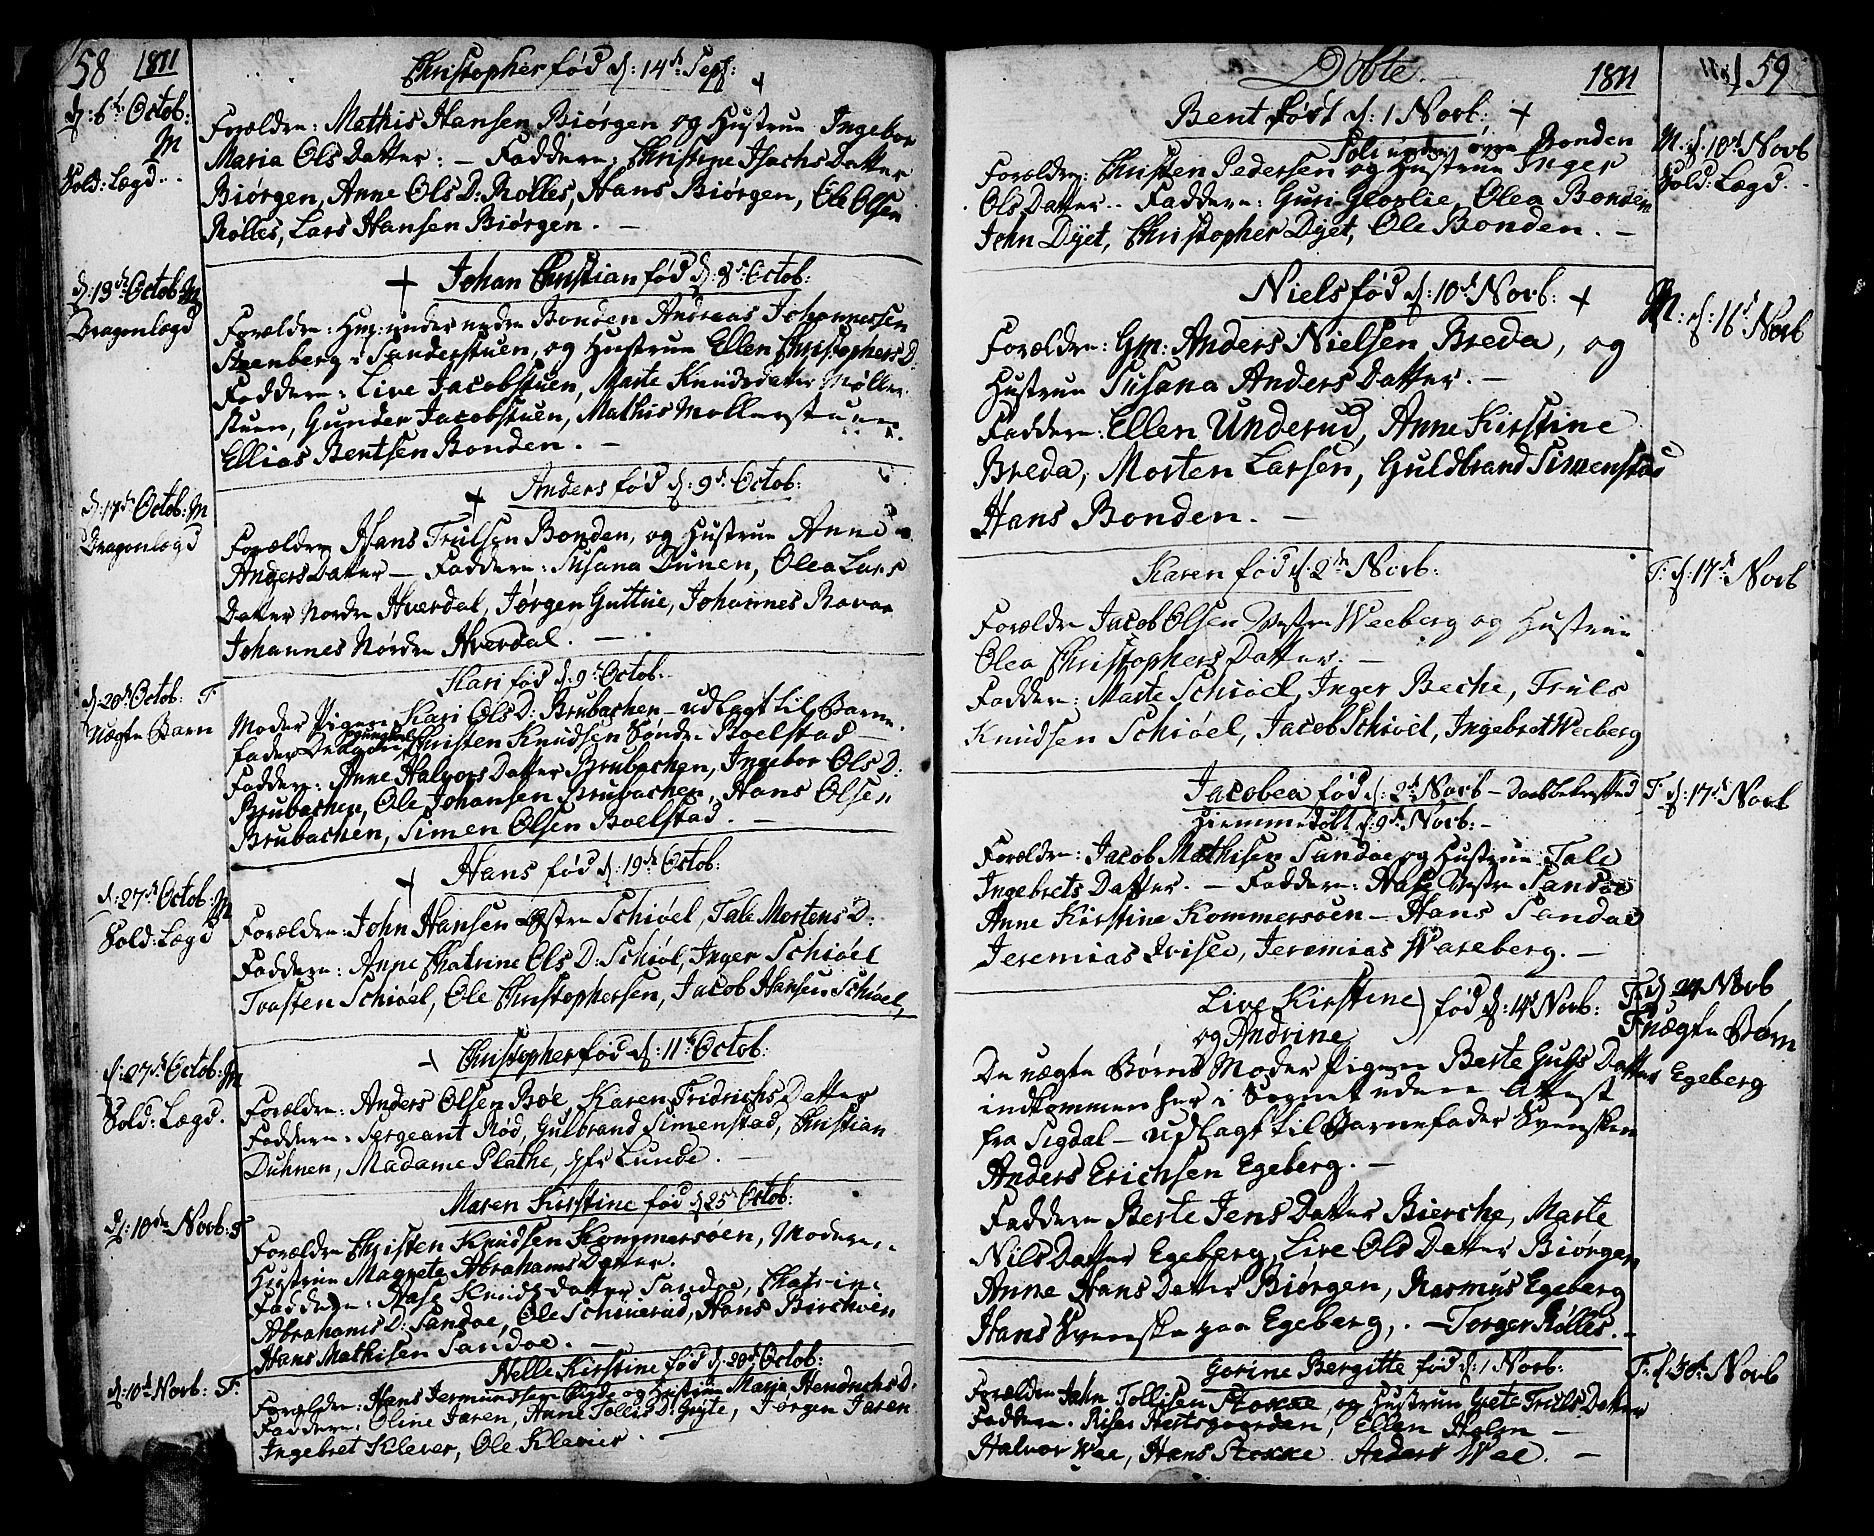 58 1811
Christopher fød d: 14de Sept:
d: 6te Octob:
M
Sold: Lægd.
Forældre: Mathis Hansen Biørgen og Hustrue Ingebor
Maria Ols Datter: — Faddere: Christine Isachs Datter
Biørgen, Anne Ols D: Rølles, Hans Biørgen, Ole Olsen
Rølles, Lars Hansen Biørgen. —
d: 13de Octob: M
Dragonlægd
+ Johan Christian fød d: 8de Octob:
Forældre: Huus: under nedre Bonden Andreas Johannessen
Steenberg i Sanderstuen, og Hustrue Ellen Christophers D:
Faddere: Live Jacobstuen, Marte Knudsdatter Møller
stuen, Gunder Jacobstuen, Mathis Mollerstuen
Ellias Bentsen Bonden. —
d: 17de Octob: M
Dragonlægd
+ Anders fød d: 9de Octob:
Forældre Hans Trulsen Bonden, og Hustrue Anne
Anders Datter — Faddere: Susana Dunen, Olea Lars
Datter Nordre Hverdal, Jørgen Guttue, Johannes
Johannes Nørdre Hverdal. —
d: 20de Octob: F
Uægte Barn
Kari fød d: 9de Octob:
Moder Pigen Kari Ols D: Brubachen — udlagt til Barne
fader Christen Knudsen Søndre Boelstad —
Faddere: Anne Halvors Datter Brubachen, Ingebor Ols D:
Brubachen, Ole Johansen Brubachen, Hans Olsen
Brubachen, Simen Olsen Boelstad. —
d: 27de Octob: M
Sold: Lægd
+ Hans fød d: 19de Octob:
Forældre: John Hansen østre Schiøel, Tale Mortens D:
Faddere: Anne Chatrine Ols D: Schiøl, Inger Schiøel
Torsten Schiøel, Ole Christophersen, Jacob Hansen Schiøel,
d: 27de Octob: M
Sold: Lægd.
+ Christopher fød d: 11te Octob:
Forældre: Anders Olsen Bøe Karen Fridrichs Datter
Faddere: Sergeant Rød, Gulbrand Simenstad, Christian
Duhnen, Madame Plathe, Jfr Lunde. —
d: 10de Novb: F
Maren Kirstine fød d 25de Octob:
Forældre Christen Knudsen Kommersøen, Moderen
Hustrue Magrete Abrahams Datter.
Faddere: Aase Knuds datter Sandoe, Chatrine
Abrahams D: Sandoe, Ole Schiuerud, Hans Birchøen
Hans Mathisen Sandoe. —
d: 10de Novb: F
Nelle Kirstine fød d: 20de Octob:
Forældre: Hans Jermundsen og Hustrue Maria Hendrichs D:
Faddere: Oline Jaren, Anne Tollis D: Jørgen Jaren
Ingebret Klever, Ole Klever. —
Døbte. 1811 59
Bent født d: 1 Novb: +
M. d: 10de Novb
Sold: Lægd.
øvre Bonden
Forældre: Christen Pedersen og Hustrue Inger
Ols Datter. Faddere: Guri Glorlie, Olea Bonden
John Dÿet, Christopher Dÿet, Ole Bonden. —
Niels fød d: 10de Novb: +
M: d: 16de Novb
Forældre: Gm: Anders Nielsen Breda, og
Hustrue Susana Anders Datter. —
Faddere: Ellen Underud, Anne Kirstine
Breda, Morten Larsen, Guldbrand Simenstad
Hans Bonden. —
Karen fød d: 2de Novb:
F: d: 17de Novb
Forældre Jacob Olsen Vestre Weeberg og Hustrue
Olea Christophers Datter. —
Faddere: Marte Schiøel, Inger Beche, Truls
Knudsen Schiøel, Jacob Schiøel, Ingebret Weeberg
Jacobea fød d: 2de Novb — Daabbekræfted
F d: 17de Novb
Hiemmedøbt d: 9de Novb: —
Forældre: Jacob Mathisen Sandoe og Hustrue Tale
Ingebrets Datter. — Faddere: Aase Vestre Sandoe
Anne Kirstine Kommersøen — Hans Sandoe
Jeremias Jvisen, Jeremias Wareberg. —
Live Kirstine
og Andrine ) fød d: 14de Novb:
F: d: 24 Novb
F uægte Børn
De uægte Børns Moder Pigen Berte Guls Datter Egeberg
indkommen her i Sognet uden Attest
fra Sigdal — udlagt til Barnefader Svensken
Anders Erichsen Egeberg. —
Faddere Berte Jens Datter Bierche, Marte
Nils Datter Egeberg, Live Ols Datter Biørgen
Anne Hans Datter Biørgen, Rasmus Egeberg
Hans Svenske paa Egeberg, . — Torger Rølles. —
Gorine Bergitte fød d: 1 Novb:
F: d: 30te Novb
Forældre John Tollisen Stokke og Hustrue Grete Truls Datter
Faddere. Ellen Holm —
Halvor Wae, Hans Stokke Anders Wae —